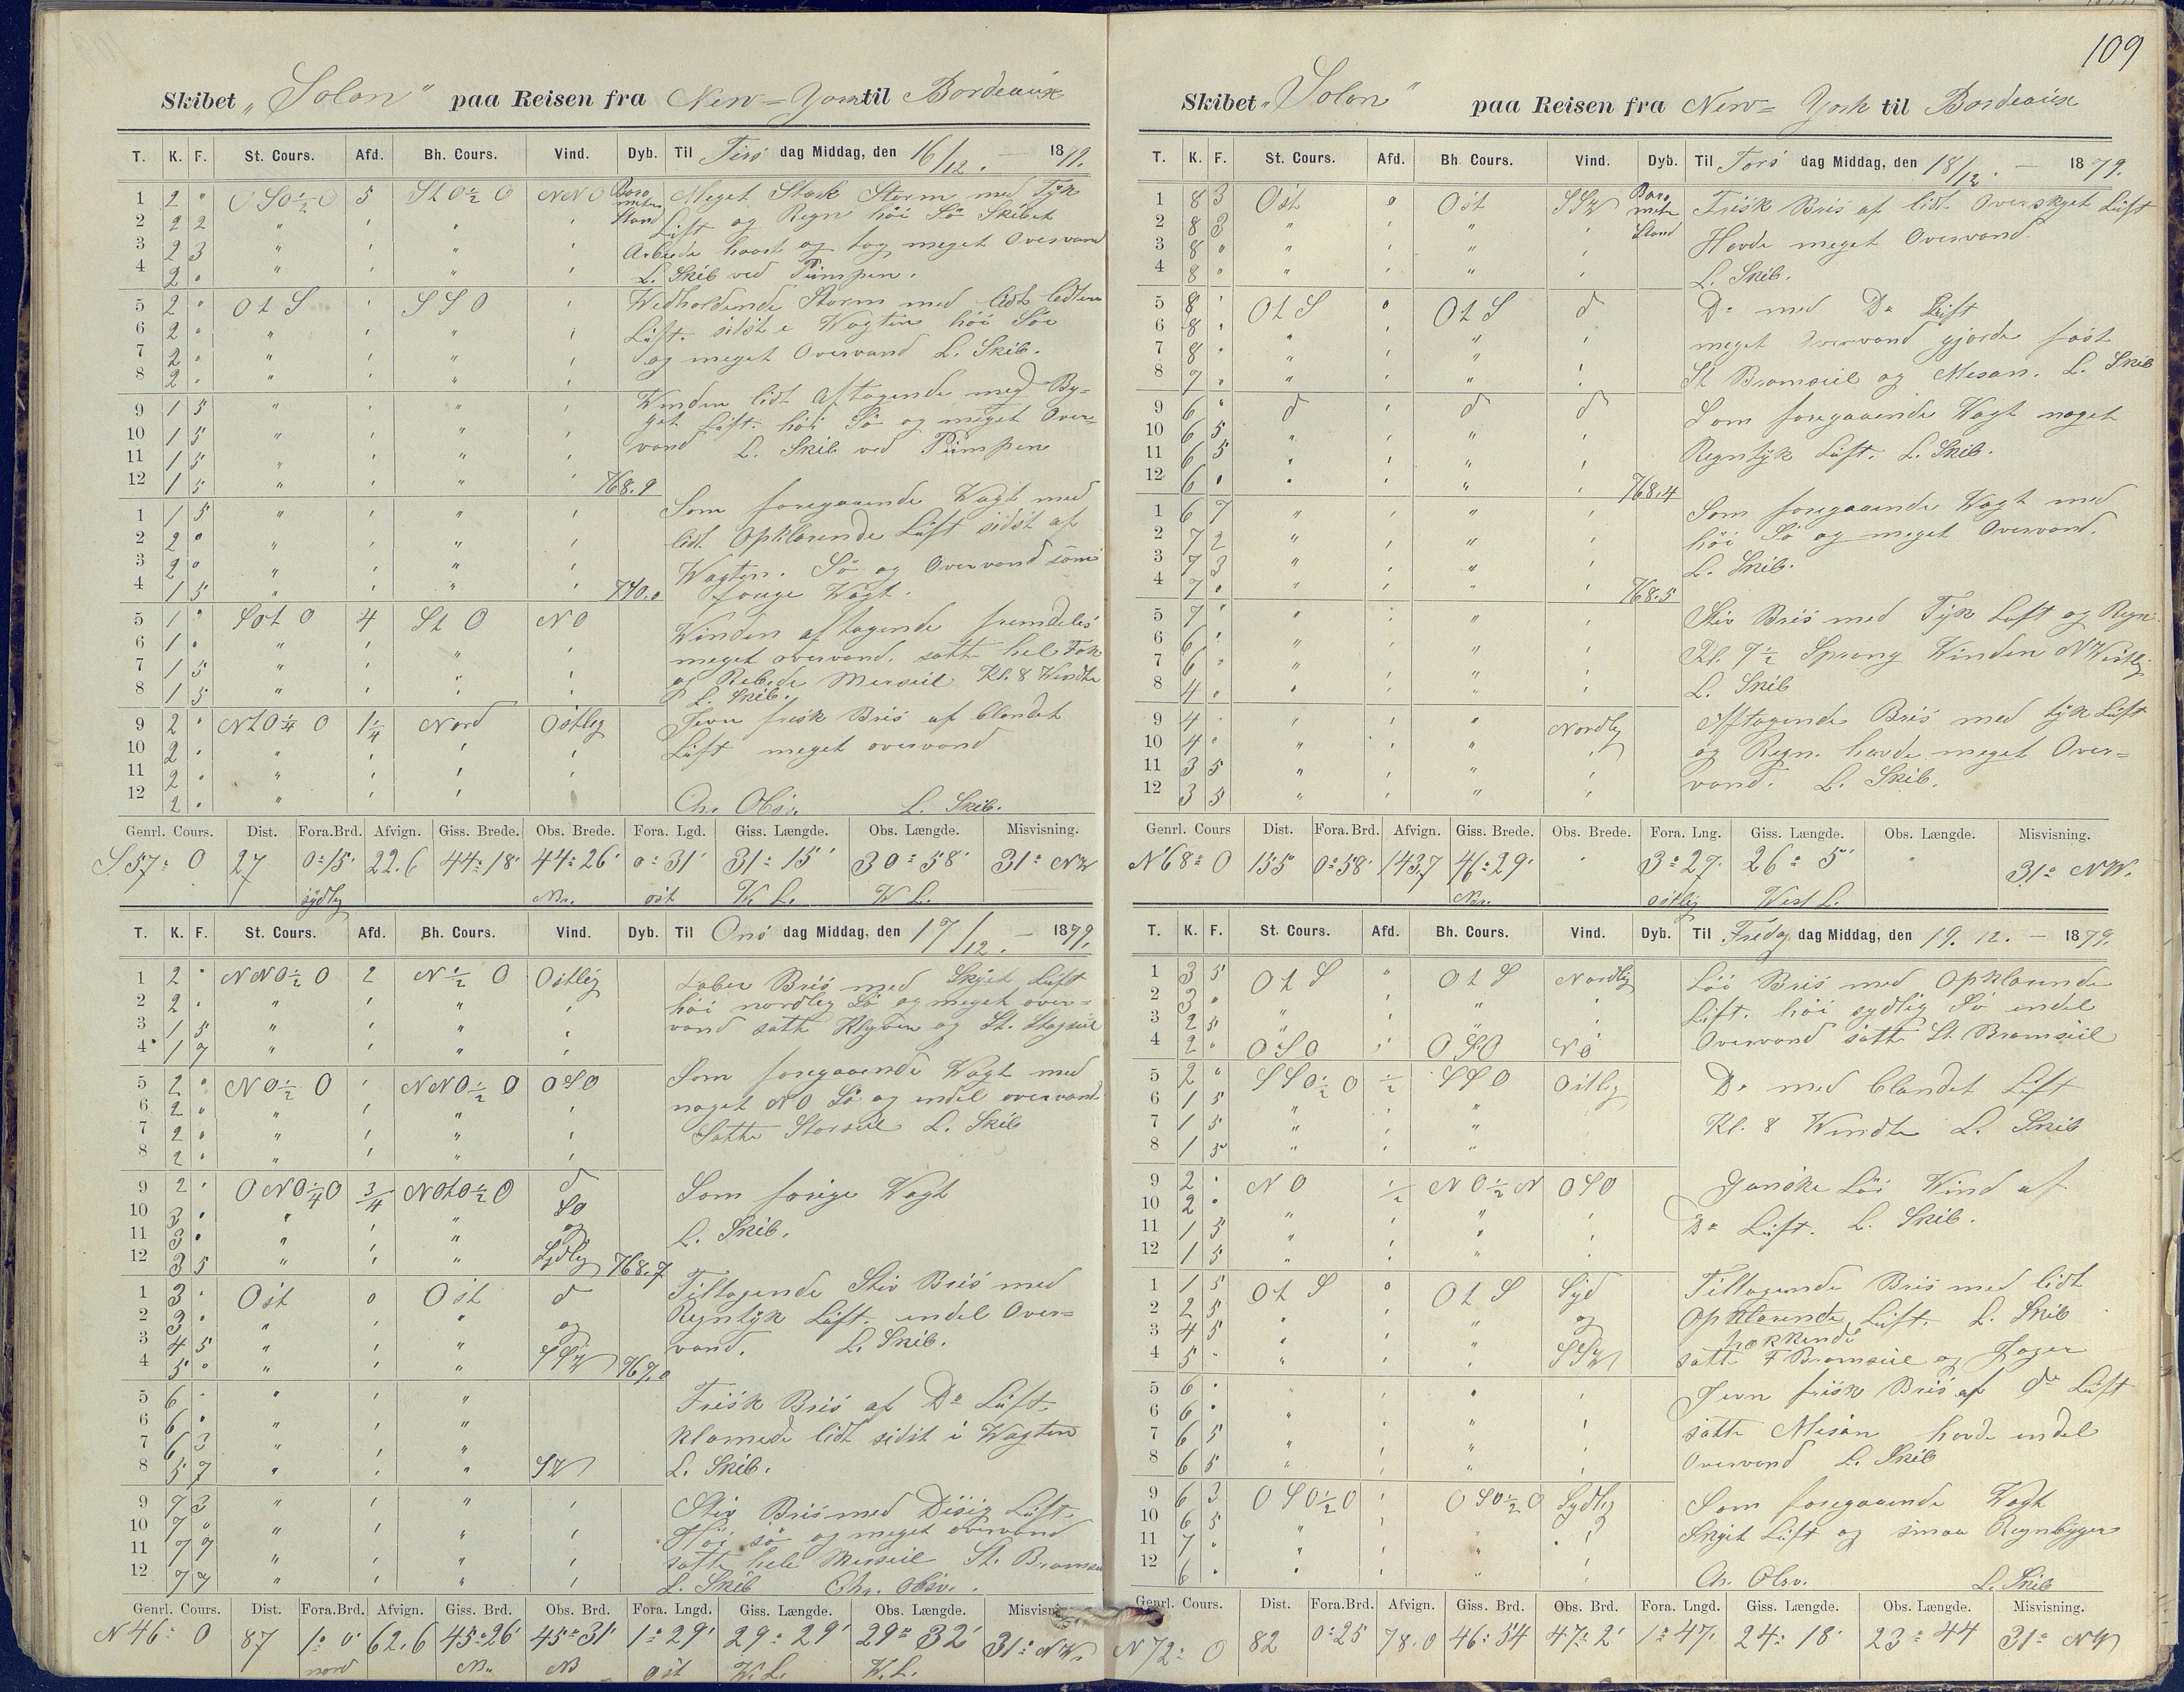 109
Skibet „Solon" paa Reisen fra New-York til Bordeaux
T. K. F. St. Cours. Afd. Bh. Cours. Vind. Dyb. Til Tirs dag Middag, den 16/12. — 1879.
1 2 " OSO½O 5 StO½O NNO Barometer Stand Meget Stærk Storm med Tyk
2 2 2 " " " Luft og Regn höi Sö Skibet
3 2 3 " " " Arbeide haart og tog meget Overvand
4 2 " " " " L. Skib ved Pumpen.
5 2 " OtS " SSO " Vedholdende Storm med lidt lettere
6 2 " " " " Luft. sidst i Vagten höi Sö
7 2 " " " " og meget Overvand L. Skib.
8 2 " " " "
9 1 5 " " " " Vinden lidt Aftagende med By-
10 1 5 " " " " get Luft. höi Sö og meget Over-
11 1 5 " " " " vand L. Skib ved Pumpen
12 1 5 " " " " 768.9
1 1 5 " " " " Som foregaaende Vagt med
2 2 " " " " " lidt Opklarende Luft sidst af
3 2 " " " " " Vagten. Sö og Overvand som
4 1 5 " " " " 770.0 forige Vagt.
5 1 " SotO 4 StO NO Vinden aftagende fremdeles
6 1 " " " " " meget overvand. satte hel Fok
7 1 5 " " " " og Rebede Merseil Kl. 8 Vendte
8 1 5 " " " " L. Skib.
9 2 " NtO¼O 1¼ Nord Östlig Jevn frisk Bris af blandet
10 2 " " " " " Luft meget overvand
11 2 " " " " "
12 2 " " " " Chr. Obsr. L. Skib.
Genrl. Cours. Dist. Fora.Brd. Afvign. Giss. Brede. Obs. Brede. Fora. Lgd. Giss. Længde. Obs. Længde. Misvisning.
S57°O 27 0°15' 22.6 44°18' 44°26' 0°31' 31°15' 30°58' 31° NW
sydlig Nr. öst W. L. W L.
T. K. F. St. Cours. Afd. Bh. Cours. Vind. Dyb. Til Ons dag Middag, den 17/12. — 1879.
1 2 " NNO½O 2 N½O Ostlig Laber Bris med Skyet Luft
2 2 " " " " " höi nordlig Sö og meget over-
3 1 5 " " " " vand satte Klyver og St. Stagseil
4 1 7 " " " "
5 2 " NO½O " NNO½O OSO Som foregaaende Vagt med
6 2 " " " " " noget NO Sö og endel overvand
7 2 " " " " " Satte Storseil L. Skib
8 2 " " " "
9 2 " ONO¼O ¾ NOtO½O d Som forige Vagt
10 3 " " " " SO L. Skib.
11 3 " " " " og
12 3 5 " " " Sydlig 768.7
1 3 " Ost 0 Ost d Tiltagende Stiv Bris med
2 3 " " " " og Regntyk Luft. endel Over-
3 4 5 " " " vand. L. Skib.
4 5 " " " " SSW 767.0
5 6 " " " " Frisk Bris af Do Luft
6 6 " " " " klarnede lidt sidst i Vagten
7 6 3 " " " L. Skib.
8 5 7 " " " SW
9 7 3 " " " " Stiv Bris med Disig Luft.
10 7 " " " " " Höi sö og meget overvand
11 7 7 " " " " satte hele Merseil St. Bramseil
12 7 7 " " " " L. Skib Chr. Obsv.
Genrl. Cours. Dist. Fora.Brd. Afvign. Giss. Brd. Obs. Brd. Fora. Lngd. Giss. Længde. Obs. Længde. Misvisning.
N46°O 87 1°0' 62.6 45°26' 45°31' 1°29' 29°29' 29°32' 31° NW
nord Nr. NB öst W. L. W. L.
Skibet „Solon" paa Reisen fra New-York til Bordeaux
T. K. F. St. Cours. Afd. Bh. Cours. Vind. Dyb. Til Tors dag Middag, den 18/12. — 1879.
1 8 3 Öst 0 Öst SSW Barometer Stand Frisk Bris af lidt Overskyet Luft
2 8 3 " " " " Havde meget Overvand.
3 8 " " " " " L. Skib.
4 8 " " " " "
5 8 " OtS 0 OtS d Do med Do Luft
6 8 " " " " " meget overvand gjorde fast
7 8 " " " " St Bramseil og Mesan. L. Skib
8 7 " " " " "
9 6 " d " d d Som foregaaende Vagt noget
10 6 5 " " " " Regntyk Luft. L. Skib.
11 6 5 " " " "
12 6 " " " " " 768.4
1 6 7 " " " " Som foregaaende Vagt med
2 7 2 " " " " höi Sö og meget Overvand.
3 7 3 " " " " L. Skib.
4 7 " " " " " 768.5
5 7 " " " " " Stiv Bris med Tyk Luft og Regn
6 6 " " " " " Kl. 7½ Sprang Vinden NWestlig
7 6 " " " " " L. Skib
8 4 " " " " "
9 4 " " " " Nordlig Aftagende Bris med tyk Luft
10 4 " " " " " og Regn. havde meget Over-
11 3 5 " " " " vand. L. Skib.
12 3 5 " " " "
Genrl. Cours Dist. Fora.Brd. Afvign. Giss. Brede. Obs. Brede. Fora. Lng. Giss. Længde. Obs. Længde. Misvisning.
N68°O 155 0°58' 143,7 46°29' " 3°27' 26°5' " 31° NW.
Nr. östlig West L.
T. K. F. St. Cours. Afd. Bh. Cours. Vind. Dyb. Til Fredag dag Middag, den 19. 12. — 1879.
1 3 5 OtS " OtS Nordlig Löi Bris med Opklarende
2 3 " " " " " Luft. höi sydlig Sö endel
3 2 5 " " " " Overvand satte St. Bramseil
4 2 " OSO " OSO NO
5 2 " SSO½O ½ SSO Ostlig Do med blandet Luft
6 1 5 " " " Kl. 8 Vendte L. Skib
7 1 5 " " "
8 1 5 " " "
9 2 " NO ½ NO½N OSO Ganske Löi Vind af
10 2 " " " " " Do Luft. L. Skib.
11 1 5 " " " "
12 1 5 " " " "
1 1 5 OtS 0 OtS Syd Tiltagende Bris med lidt
2 2 5 " " " og Opklarende Luft. L. Skib
3 4 5 " " "
4 5 " " " " SSW satte F Bramseil og Jager
5 6 " " " " " Jevn frisk Bris af do Luft
6 6 " " " " satte Mesan havde endel
7 6 5 " " " " Overvand L. Skib
8 6 5 " " " "
9 6 3 OSO½O " OSO½O Sydlig Som foregaaende Vagt
10 6 5 " " " " Skyet Luft og smaa Regnbyger
11 7 " " " " "
12 6 " " " " " Chr. Obsv. L. Skib
Genrl. Cours. Dist. Fora.Brd. Afvign. Giss. Brd. Obs. Brd. Fora. Lngd. Giss. Længde. Obs. Længde. Misvisning.
N72°O 82 0°25 78.0 46°54 47°2' 1°47' 24°18' 23°44 31° NW